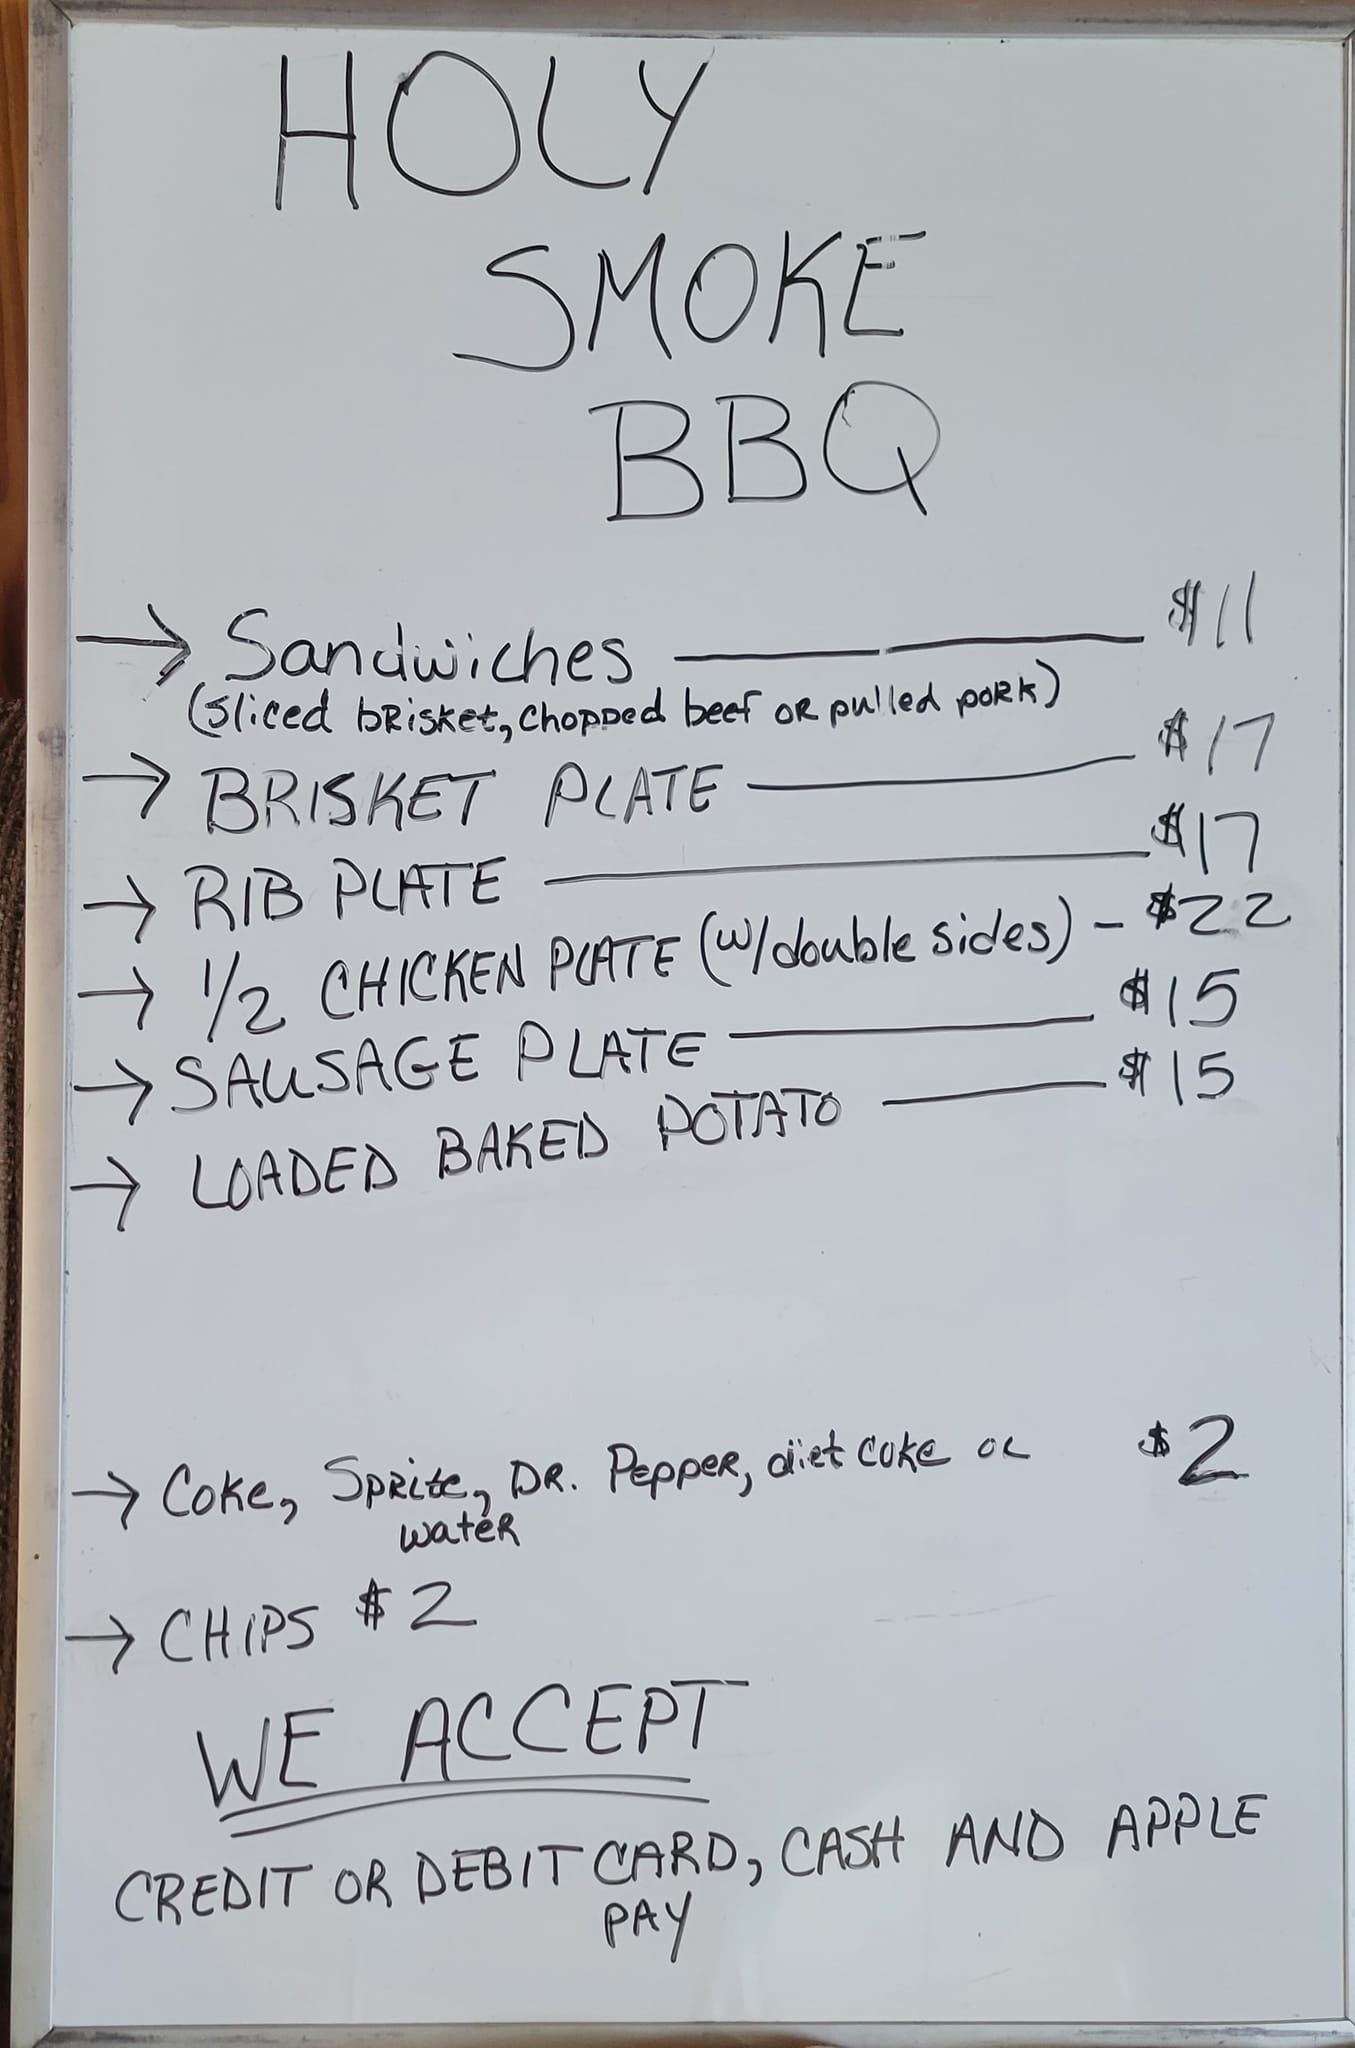 HOLY
SMOKE
BBQ
→ Sandwiches — $11
(sliced brisket, chopped beef or pulled pork)
→ BRISKET PLATE — $17
→ RIB PLATE — $17
→ 1/2 CHICKEN PLATE (w/double sides) - $22
→ SAUSAGE PLATE — $15
→ LOADED BAKED POTATO — $15
→ Coke, Sprite, DR. Pepper, diet coke or $2
water
→ CHIPS $2
WE ACCEPT
CREDIT OR DEBIT CARD, CASH AND APPLE
PAY